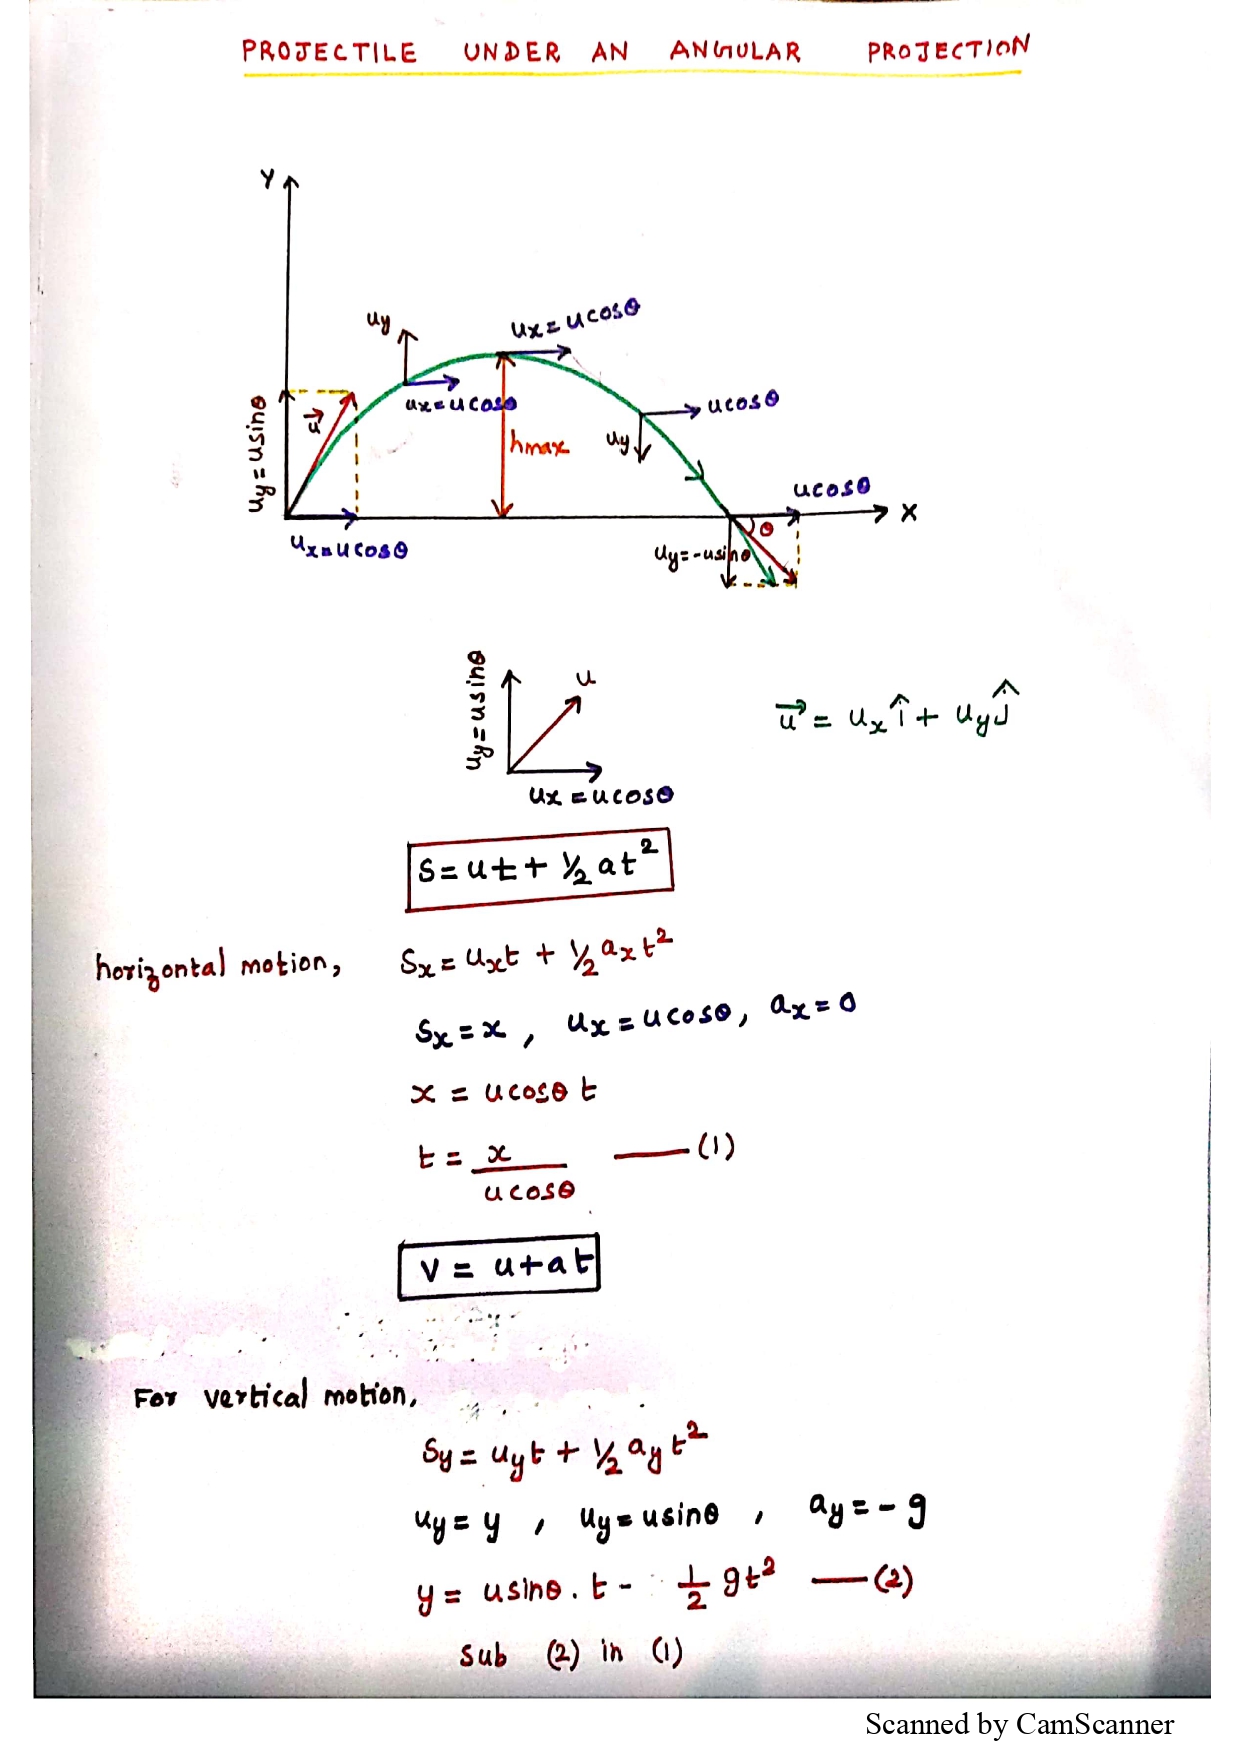 PROJECTILE UNDER AN ANGULAR PROJECTION
Y
uy
ux = ucosθ
uy = usinθ
u⃗
ux = ucosθ
ucosθ
hmax
uy
ucosθ
X
θ
ux = ucosθ
uy = -usinθ
uy = usinθ
u
u⃗ = uₓ î + uy ĵ
ux = ucosθ
S = ut + ½ at²
horizontal motion, Sx = uxt + ½ axt²
Sx = x , ux = ucosθ, ax = 0
x = ucosθ t
t = x / ucosθ —(1)
V = u+at
For vertical motion,
Sy = uyt + ½ ayt²
uy = y , uy = usinθ , ay = -g
y = usinθ . t - 1/2 gt² —(2)
sub (2) in (1)
Scanned by CamScanner